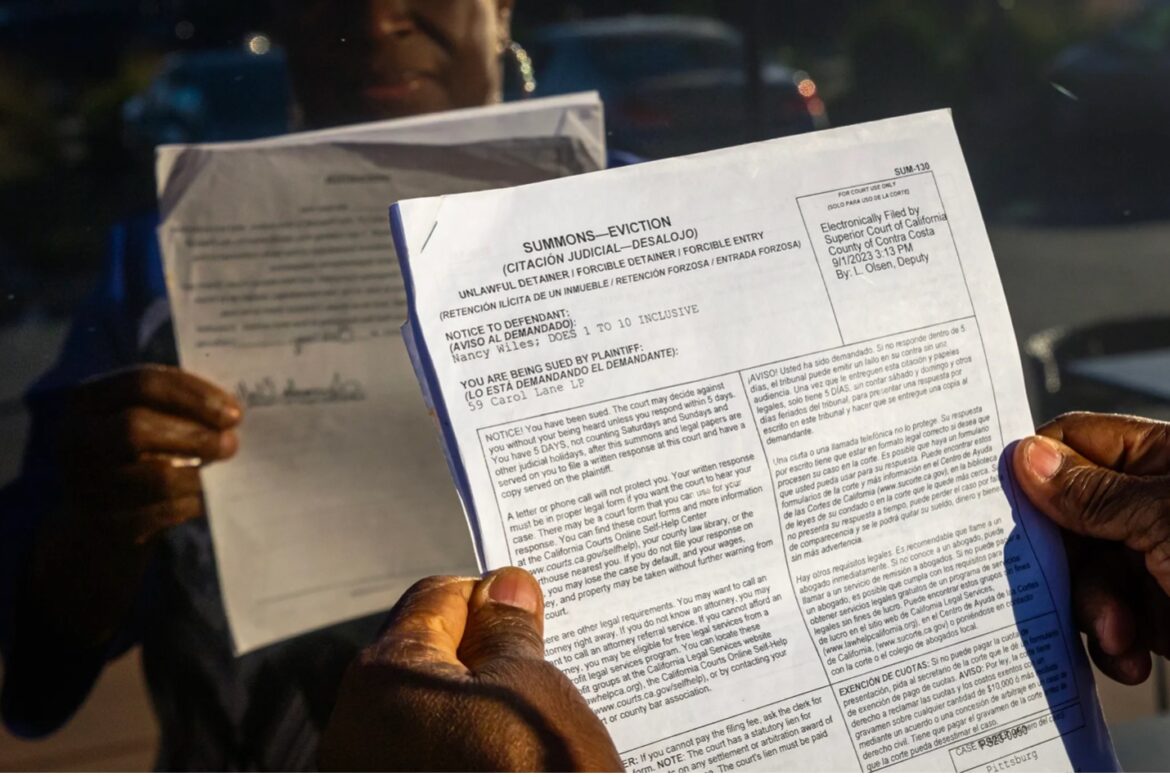 SUM-130
SUMMONS—EVICTION
(CITACIÓN JUDICIAL—DESALOJO)
UNLAWFUL DETAINER / FORCIBLE DETAINER / FORCIBLE ENTRY
(RETENCIÓN ILÍCITA DE UN INMUEBLE / RETENCIÓN FORZOSA / ENTRADA FORZOSA)
FOR COURT USE ONLY
(SOLO PARA USO DE LA CORTE)
Electronically Filed by
Superior Court of California
County of Contra Costa
9/1/2023 3:13 PM
By: L. Olsen, Deputy
NOTICE TO DEFENDANT:
(AVISO AL DEMANDADO):
Nancy Wiles; DOES 1 TO 10 INCLUSIVE
YOU ARE BEING SUED BY PLAINTIFF:
(LO ESTÁ DEMANDANDO EL DEMANDANTE):
59 Carol Lane LP
NOTICE! You have been sued. The court may decide against
you without your being heard unless you respond within 5 days.
You have 5 DAYS, not counting Saturdays and Sundays and
other judicial holidays, after this summons and legal papers are
served on you to file a written response at this court and have a
copy served on the plaintiff.
A letter or phone call will not protect you. Your written response
must be in proper legal form if you want the court to hear your
case. There may be a court form that you can use for your
response. You can find these court forms and more information
at the California Courts Online Self-Help Center
www.courts.ca.gov/selfhelp), your county law library, or the
thouse nearest you. If you do not file your response on
you may lose the case by default, and your wages,
ey, and property may be taken without further warning from
court.
ere are other legal requirements. You may want to call an
torney right away. If you do not know an attorney, you may
nt to call an attorney referral service. If you cannot afford an
rney, you may be eligible for free legal services from a
ofit legal services program. You can locate these
ofit groups at the California Legal Services website
whelpca.org), the California Courts Online Self-Help
www.courts.ca.gov/selfhelp), or by contacting your
rt or county bar association.
¡AVISO! Usted ha sido demandado. Si no responde dentro de 5
días, el tribunal puede emitir un fallo en su contra sin una
audiencia. Una vez que le entreguen esta citación y papeles
legales, solo tiene 5 DÍAS, sin contar sábado y domingo y otros
días feriados del tribunal, para presentar una respuesta por
escrito en este tribunal y hacer que se entregue una copia al
demandante.
Una carta o una llamada telefónica no lo protege. Su respuesta
por escrito tiene que estar en formato legal correcto si desea que
procesen su caso en la corte. Es posible que haya un formulario
que usted pueda usar para su respuesta. Puede encontrar estos
formularios de la corte y más información en el Centro de Ayuda
de las Cortes de California (www.sucorte.ca.gov), en la biblioteca
de leyes de su condado o en la corte que le quede más cerca. Si
no presenta su respuesta a tiempo, puede perder el caso por falta
de comparecencia y se le podrá quitar su sueldo, dinero y bienes
sin más advertencia.
Hay otros requisitos legales. Es recomendable que llame a un
abogado inmediatamente. Si no conoce a un abogado, puede
llamar a un servicio de remisión a abogados. Si no puede pagar a
un abogado, es posible que cumpla con los requisitos para
obtener servicios legales gratuitos de un programa de servicios
legales sin fines de lucro. Puede encontrar estos grupos sin fines
de lucro en el sitio web de California Legal Services,
(www.lawhelpcalifornia.org), en el Centro de Ayuda de las Cortes
de California, (www.sucorte.ca.gov) o poniéndose en contacto
con la corte o el colegio de abogados local.
ER: If you cannot pay the filing fee, ask the clerk for
form. NOTE: The court has a statutory lien for
s on any settlement or arbitration award of
The court's lien must be paid
EXENCIÓN DE CUOTAS: Si no puede pagar la cuota de
presentación, pida al secretario de la corte que le dé un formulario
de exención de pago de cuotas. AVISO: Por ley, la corte tiene
derecho a reclamar las cuotas y los costos exentos con un
gravamen sobre cualquier cantidad de $10,000 ó más recibida
mediante un acuerdo o una concesión de arbitraje en un caso de
derecho civil. Tiene que pagar el gravamen de la corte antes de
que la corte pueda desestimar el caso.
CASE
Pittsburg